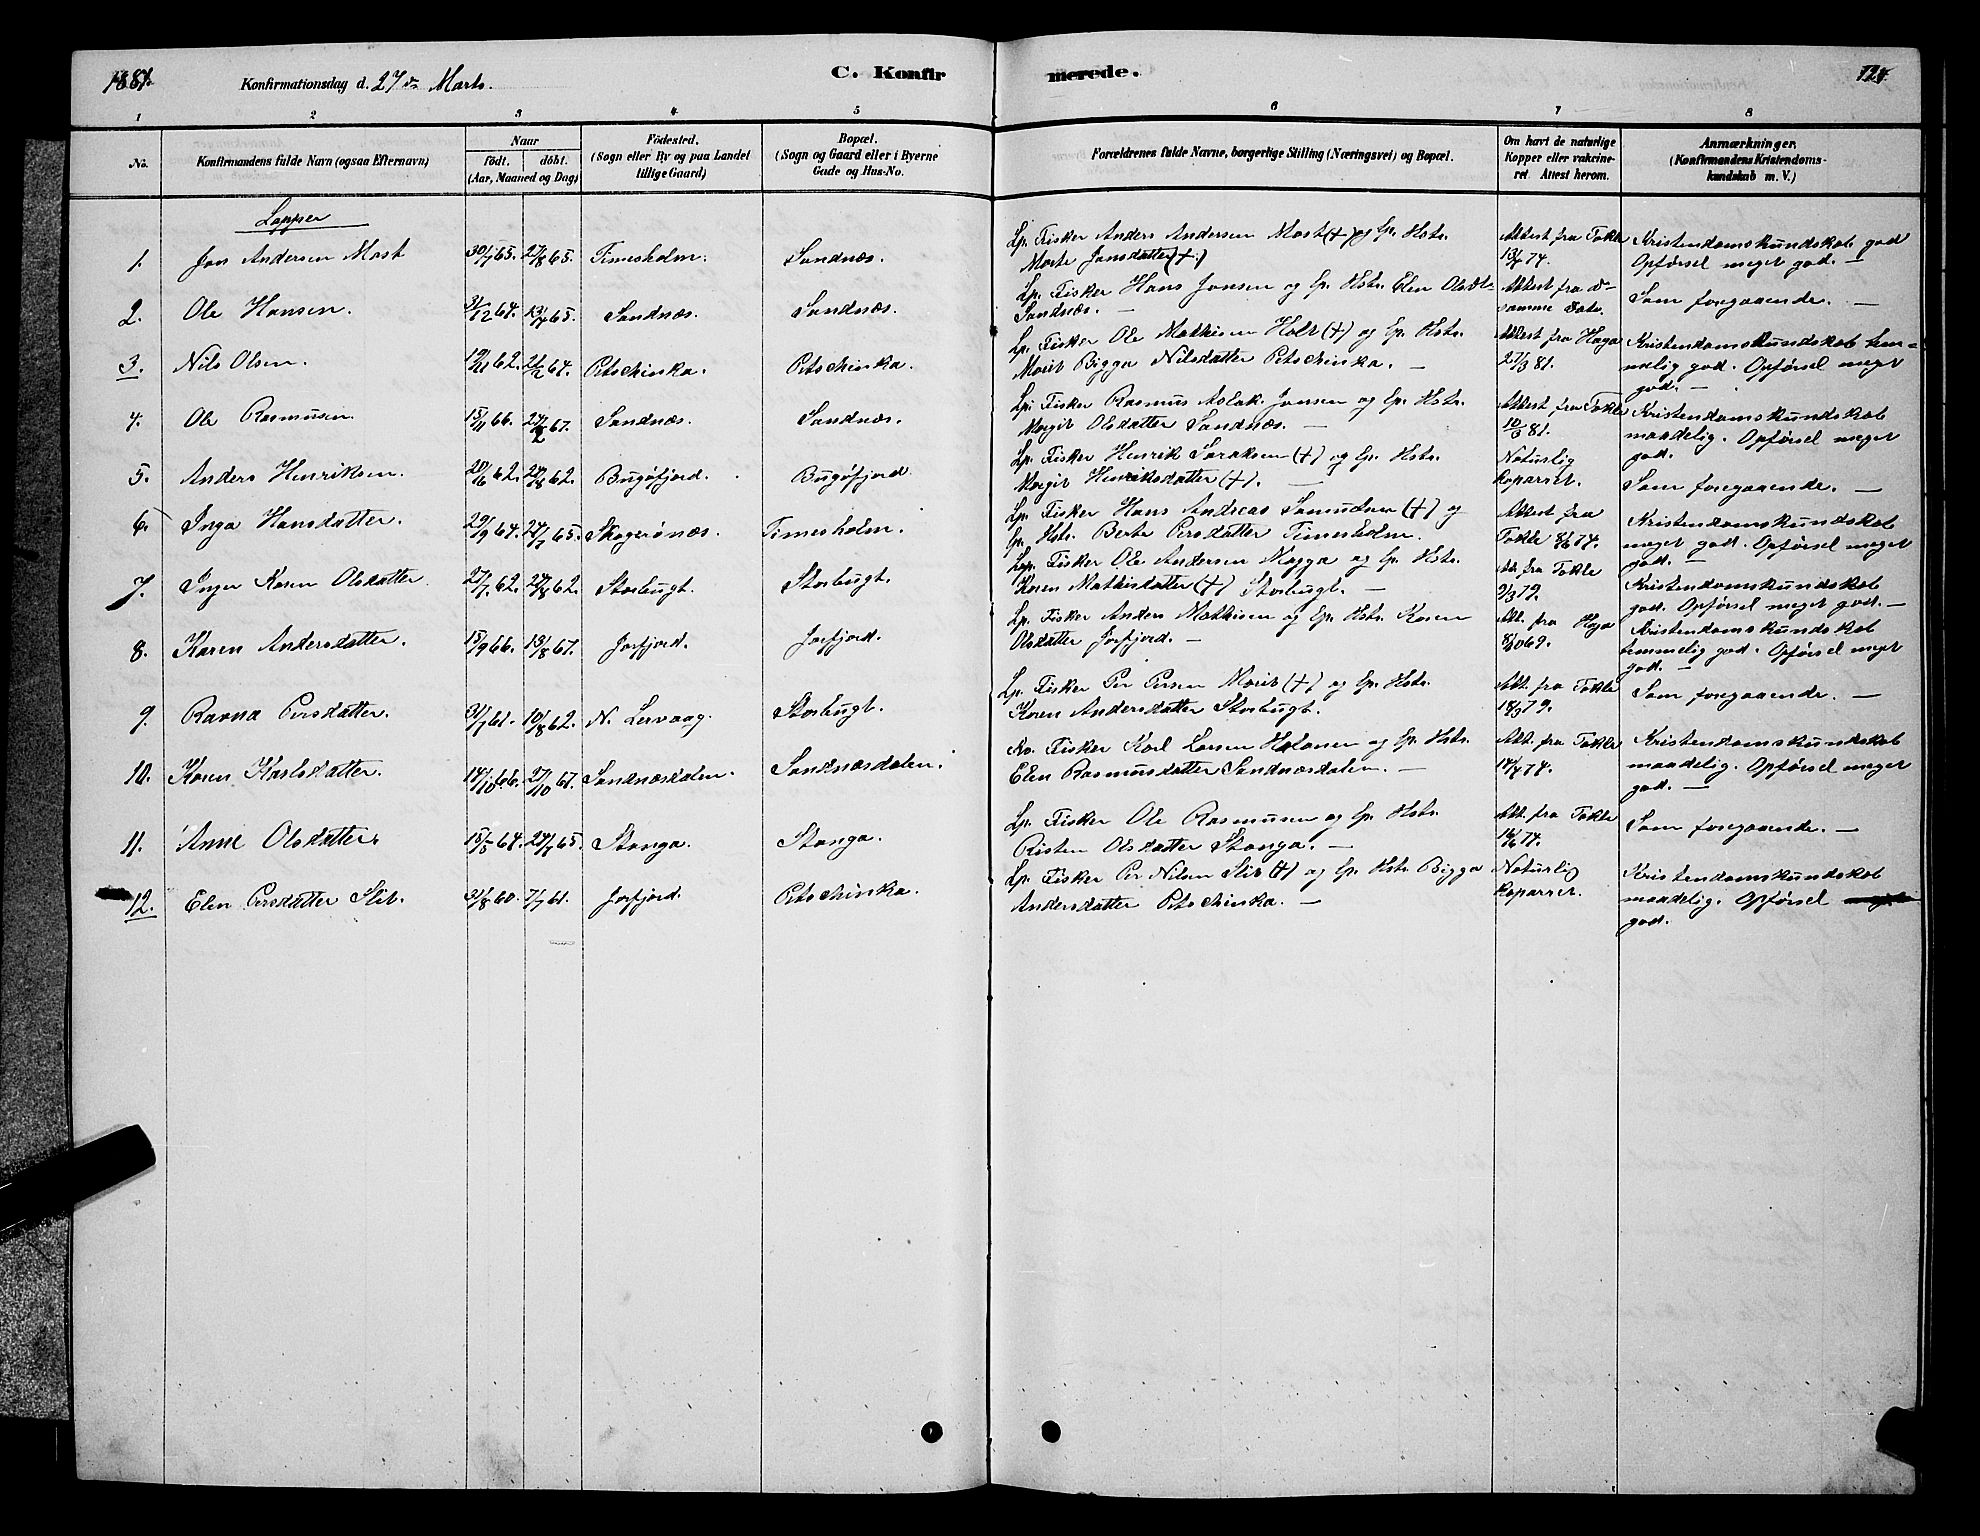 1881. Konfirmationsdag d. 27de Marts. C. Konfirmerede. 124.
1 2 3 4 5 6 7 8
No. Konfirmandens fulde Navn (ogsaa Efternavn) Naar født. døbt. (Aar, Maaned og Dag) Födested. (Sogn eller By og paa Landet tillige Gaard) Bopæl. (Sogn og Gaard eller i Byerne Gade og Hus-No. Forældrenes fulde Navne, borgerlige Stilling (Næringsvei) og Bopæl. Om havt de naturlige Kopper eller vakcineret Attest herom. Anmærkninger. (Konfirmandens Kristendomskundskab m. V.)
Lapper
1. Jon Andersen Most 30/7 65. 27/8 65. Timesholm. Sandnæs. Lp. Fisker Anders Andersen Most (+) og Lp. Hstr. Attest fra Tokle Kristendomskundskab god
Marte Jonsdatter (+) 13/7 74. Opførsel meget god. —
2. Ole Hansen. 31/12 64. 13/4 65. Sandnæs. Sandnæs. Lp. Fisker Hans Jonsen og Lp. Hstr. Elen Olsdtr. Attest fra do Som foregaaende. —
Sandnæs. — samme Dato.
3. Nils Olsen. 19/11 62. 21/2 64. Petschinka. Petschinka. Lp. Fisker Ole Mathisen Holt (+) og Lp. Hstr. Attest fra Haga Kristendomskundskab tem-
Marit Bigga Nilsdatter Petschinka. — 27/3 81. melig god. Opførsel meget
god. —
4. Ole Rasmusen. 15/11 66. 24/2 67. Sandnæs. Sandnæs. Lp. Fisker Rasmus Aslak Jonsen og Lp. Hstr. Attest fra Tokle Kristendomskundskab
Margit Olsdatter Sandnæs. — 10/3 81. maadelig. Opførsel meget
god.
5. Anders Henriksen. 20/6 62. 24/8 62. Bugöfjord. Bugöfjord. Lp. Fisker Henrik Saraksen (+) og Lp. Hstr. Naturlig Som foregaaende. —
Margit Henriksdatter (+). — koparret.
6. Inga Hansdatter. 29/9 64. 24/7 65. Skogerönæs. Timesholm. Lp. Fisker Hans Andreas Samuelsen (+) og Attest fra Kristendomskundskab
Lp. Hstr. Berte Persdatter Timesholm. Tokle 8/6 74. meget god. Opførsel meget
god. —
7. Inger Karen Olsdatter. 27/7 62. 24/8 62. Storbugt. Storbugt. Lp. Fisker Ole Andersen Nagga og Lp. Hstr. Att. fra Tokle Kristendomskundskab
Karen Mathisdatter (+) Storbugt. — 2/3 79. god. Opførsel meget god. —
8. Karen Andersdatter. 15/9 66. 13/8 67. Jarfjord. Jarfjord. Lp. Fisker Anders Mathisen og Lp. Hstr. Karen Att. fra Haga Kristendomskundskab
Olsdatter Jarfjord. — 8/10 69. temmelig god. Opførsel meget
god. —
9. Ravna Persdatter. 31/7 61. 10/8 62. N. Lervaag. Storbugt. Lp. Fisker Per Persen Marit (+) og Lp. Hstr. Att. fra Tokle Som foregaaende. —
Karen Andersdatter Storbugt. 18/3 79.
10. Karen Karlsdatter. 14/10 66. 27/10 67. Sandnæsdalen. Sandnæsdalen. Kv. Fisker Karl Larsen Hatanen og Lp. Hstr. Att. fra Tokle Kristendomskundskab
Elen Rasmusdatter Sandnæsdalen. — 14/7 74. maadelig. Opførsel meget
god. —
11. Anne Olsdatter. 15/5 64. 24/7 65. Stanga. Stanga. Lp. Fisker Ole Rasmusen og Lp. Hstr. Att. fra Tokle Som foregaaende. —
Risten Olsdatter Stanga. — 16/6 74.
12. Elen Persdatter Slit. 31/8 60. 7/7 61. Jarfjord. Petschinka. Lp. Fisker Per Nilsen Slit (+) og Lp. Hstr. Bigga Naturlig Kristendomskundskab
Andersdatter Petschinka. — koparret. maadelig. Opførsel
god.